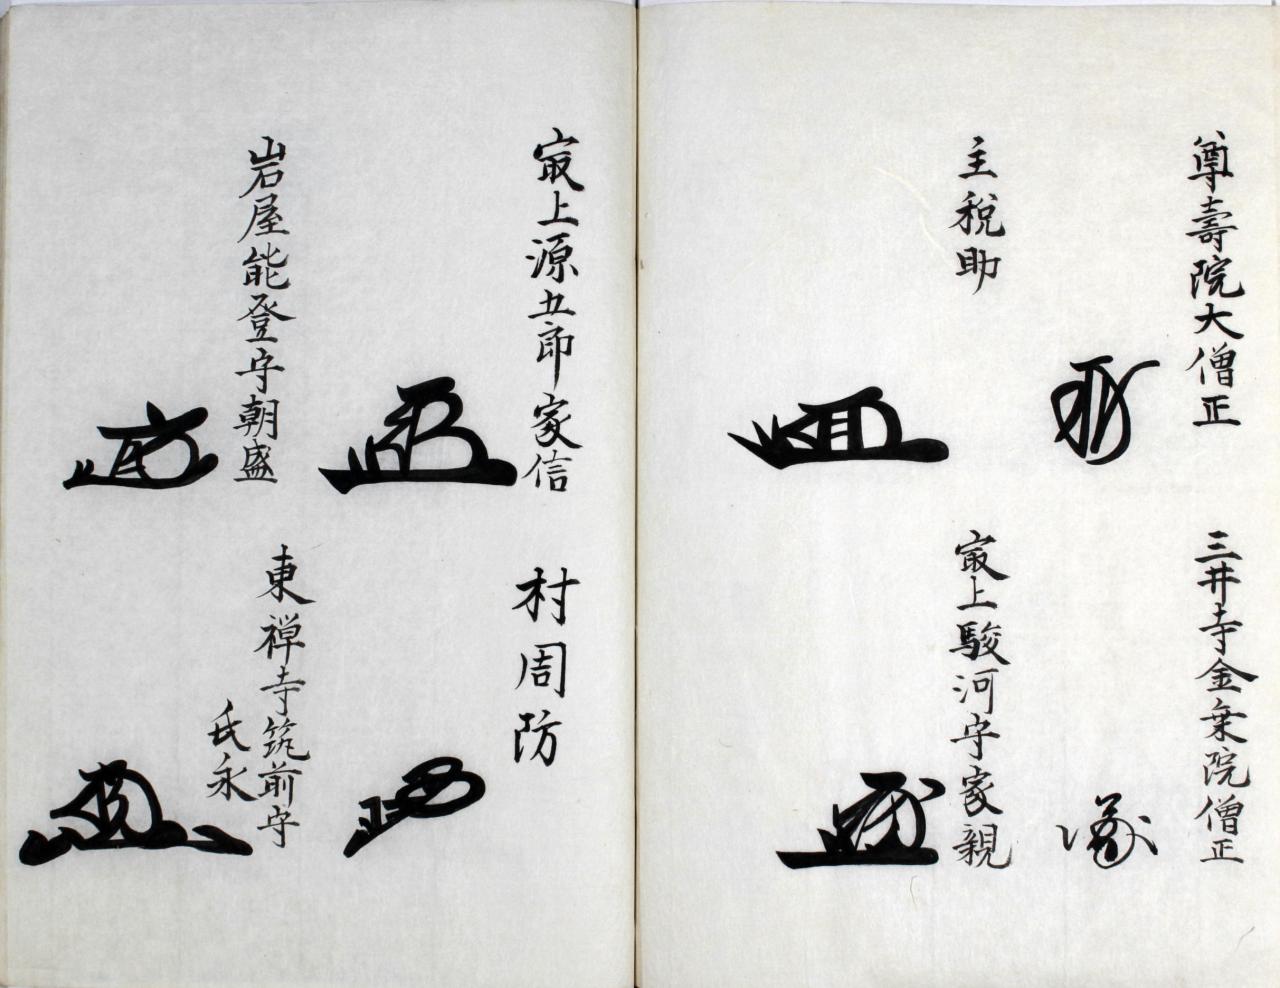 尊壽院大僧正
三井寺金乗院僧正
主税助
㝡上駿河守家親
㝡上源五郎家信
村周防
岩屋能登守朝盛
東禅寺筑前守
氏永